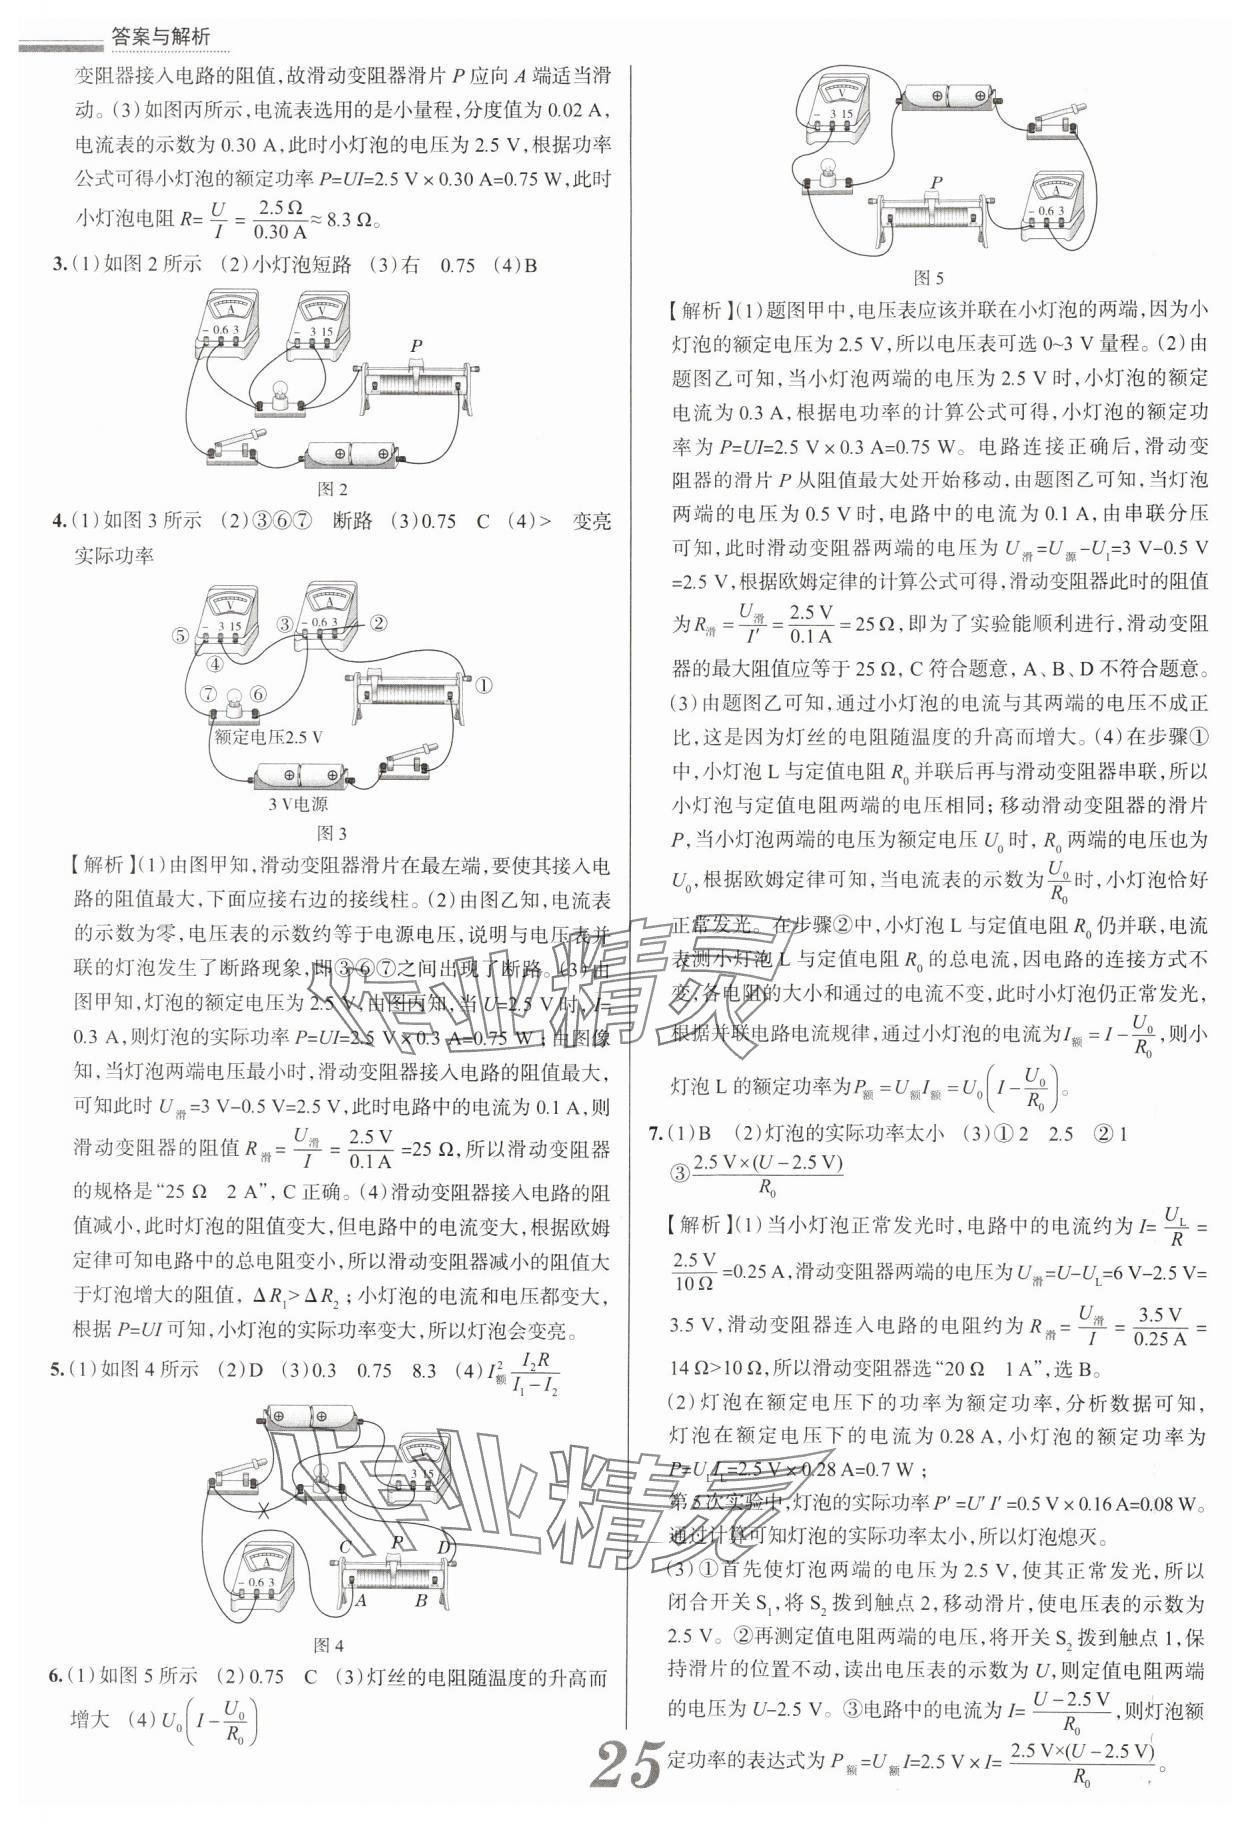 答案与解析
变阻器接入电路的阻值,故滑动变阻器滑片 P 应向 A 端适当滑
动。(3)如图丙所示,电流表选用的是小量程,分度值为 0.02 A,
电流表的示数为 0.30 A,此时小灯泡的电压为 2.5 V,根据功率
公式可得小灯泡的额定功率 P=UI=2.5 V×0.30 A=0.75 W,此时
小灯泡电阻 R= U/I = 2.5 Ω/0.30 A ≈ 8.3 Ω。
3.(1)如图 2 所示 (2)小灯泡短路 (3)右 0.75 (4)B
A
V
- 0.6 3
- 3 15
P
图 2
4.(1)如图 3 所示 (2)③⑥⑦ 断路 (3)0.75 C (4)> 变亮
实际功率
V
A
- 3 15
③ - 0.6 3 ②
⑤
④
⑦ ⑥
①
额定电压2.5 V
3 V电源
图 3
【解析】(1)由图甲知,滑动变阻器滑片在最左端,要使其接入电
路的阻值最大,下面应接右边的接线柱。(2)由图乙知,电流表
的示数为零,电压表的示数约等于电源电压,说明与电压表并
联的灯泡发生了断路现象,即③⑥⑦之间出现了断路。(3)由
图甲知,灯泡的额定电压为 2.5 V,由图丙知,当 U=2.5 V 时,I=
0.3 A,则灯泡的实际功率 P=UI=2.5 V×0.3 A=0.75 W;由图像
知,当灯泡两端电压最小时,滑动变阻器接入电路的阻值最大,
可知此时 U滑=3 V-0.5 V=2.5 V,此时电路中的电流为 0.1 A,则
滑动变阻器的阻值 R滑= U滑/I = 2.5 V/0.1 A =25 Ω,所以滑动变阻器
的规格是“25 Ω 2 A”, C 正确。(4)滑动变阻器接入电路的阻
值减小,此时灯泡的阻值变大,但电路中的电流变大,根据欧姆
定律可知电路中的总电阻变小,所以滑动变阻器减小的阻值大
于灯泡增大的阻值, ΔR₁>ΔR₂;小灯泡的电流和电压都变大,
根据 P=UI 可知,小灯泡的实际功率变大,所以灯泡会变亮。
5.(1)如图 4 所示 (2)D (3)0.3 0.75 8.3 (4)I²额 I₂R/(I₁-I₂)
V
- 3 15
A
- 0.6 3
C P D
A B
图 4
6.(1)如图 5 所示 (2)0.75 C (3)灯丝的电阻随温度的升高而
增大 (4)U₀(I-U₀/R₀)
V
- 3 15
P
A
- 0.6 3
图 5
【解析】(1)题图甲中,电压表应该并联在小灯泡的两端,因为小
灯泡的额定电压为 2.5 V,所以电压表可选 0~3 V 量程。(2)由
题图乙可知,当小灯泡两端的电压为 2.5 V 时,小灯泡的额定
电流为 0.3 A,根据电功率的计算公式可得,小灯泡的额定功
率为 P=UI=2.5 V×0.3 A=0.75 W。电路连接正确后,滑动变
阻器的滑片 P 从阻值最大处开始移动,由题图乙可知,当灯泡
两端的电压为 0.5 V 时,电路中的电流为 0.1 A,由串联分压
可知,此时滑动变阻器两端的电压为 U滑=U源-U₁=3 V-0.5 V
=2.5 V,根据欧姆定律的计算公式可得,滑动变阻器此时的阻值
为 R滑= U滑/I′ = 2.5 V/0.1 A =25 Ω,即为了实验能顺利进行,滑动变阻
器的最大阻值应等于 25 Ω, C 符合题意, A、B、D 不符合题意。
(3)由题图乙可知,通过小灯泡的电流与其两端的电压不成正
比,这是因为灯丝的电阻随温度的升高而增大。(4)在步骤①
中,小灯泡 L 与定值电阻 R₀ 并联后再与滑动变阻器串联,所以
小灯泡与定值电阻两端的电压相同;移动滑动变阻器的滑片
P,当小灯泡两端的电压为额定电压 U₀ 时, R₀ 两端的电压也为
U₀,根据欧姆定律可知,当电流表的示数为 U₀/R₀ 时,小灯泡恰好
正常发光。在步骤②中,小灯泡 L 与定值电阻 R₀ 仍并联,电流
表测小灯泡 L 与定值电阻 R₀ 的总电流,因电路的连接方式不
变,各电阻的大小和通过的电流不变,此时小灯泡仍正常发光,
根据并联电路电流规律,通过小灯泡的电流为 I额 = I - U₀/R₀,则小
灯泡 L 的额定功率为 P额 = U额I额 = U₀(I-U₀/R₀)。
7.(1)B (2)灯泡的实际功率太小 (3)①2 2.5 ②1
③ 2.5 V×(U-2.5 V)/R₀
【解析】(1)当小灯泡正常发光时,电路中的电流约为 I= U_L/R =
2.5 V/10 Ω =0.25 A,滑动变阻器两端的电压为 U滑=U-U_L=6 V-2.5 V=
3.5 V,滑动变阻器连入电路的电阻约为 R滑= U滑/I = 3.5 V/0.25 A =
14 Ω>10 Ω,所以滑动变阻器选“20 Ω 1 A”,选 B。
(2)灯泡在额定电压下的功率为额定功率,分析数据可知,
灯泡在额定电压下的电流为 0.28 A,小灯泡的额定功率为
P=U_L I_L=2.5 V×0.28 A=0.7 W;
第 5 次实验中,灯泡的实际功率 P′=U′I′=0.5 V×0.16 A=0.08 W。
通过计算可知灯泡的实际功率太小,所以灯泡熄灭。
(3)①首先使灯泡两端的电压为 2.5 V,使其正常发光,所以
闭合开关 S₁,将 S₂ 拨到触点 2,移动滑片,使电压表的示数为
2.5 V。②再测定值电阻两端的电压,将开关 S₂ 拨到触点 1,保
持滑片的位置不动,读出电压表的示数为 U,则定值电阻两端
的电压为 U-2.5 V。③电路中的电流为 I= (U-2.5 V)/R₀,则灯泡额
定功率的表达式为 P额=U额I=2.5 V×I= 2.5 V×(U-2.5 V)/R₀。
25
作业精灵
作业精灵